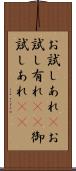 お試しあれ《《お
試し有れ《《御
試しあれ《《